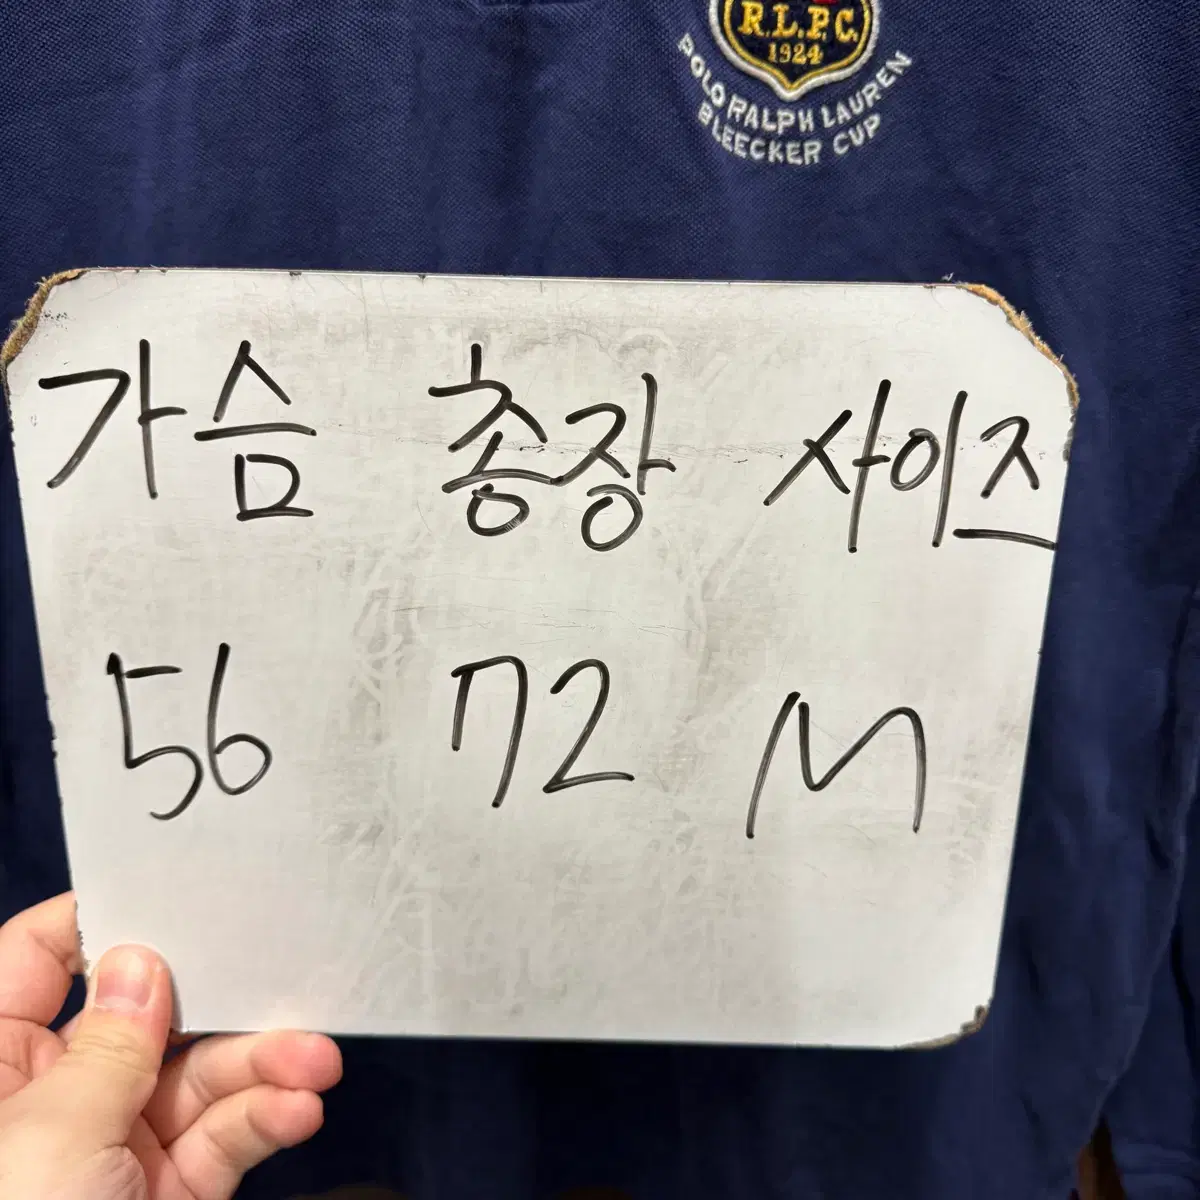 R.L.P.C.
1924
POLO RALPH LAUREN
BLEECKER CUP
가슴 총장 사이즈
56 72 M